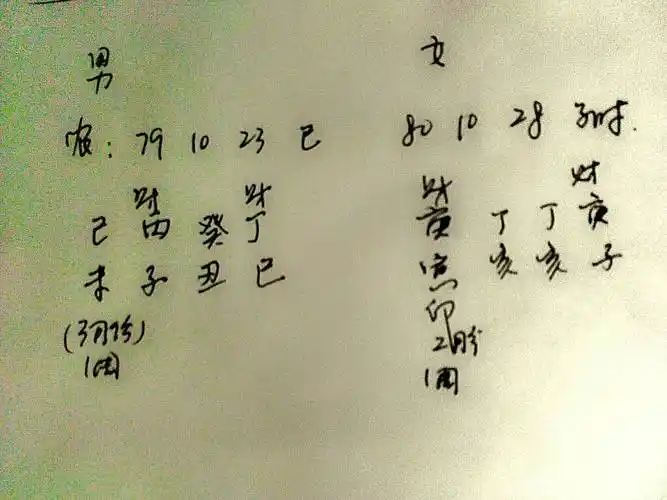 男 女
农: 79 10 23 巳 80 10 28 子时.
财 财 财 财
己 丙 癸 丁 庚 丁 丁 庚
未 子 丑 巳 申 亥 亥 子
(3月份) 印
1周 2月份
1周